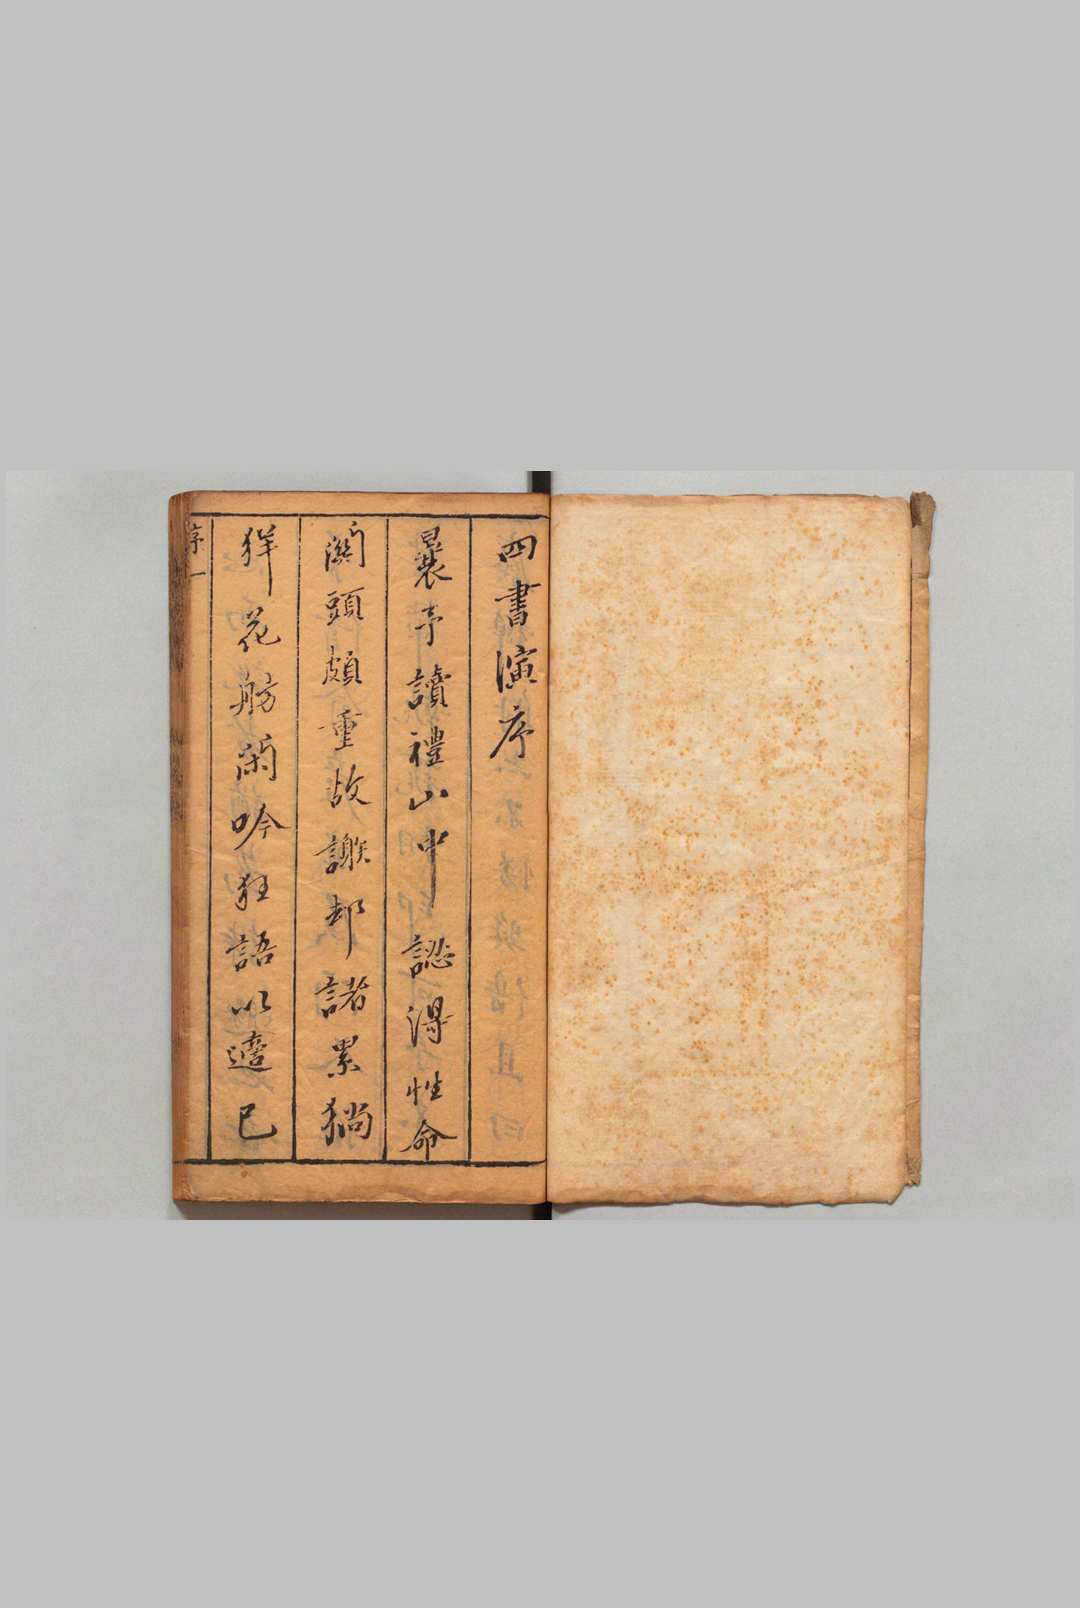 四書演序
曩予讀禮山中認得性命
關頭頗重故謝却諸累徜
徉花舫閑吟狂語以適己
序 一